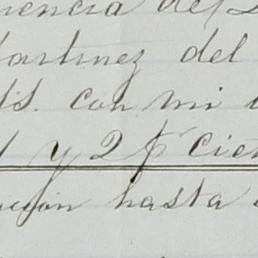 uencia del
Martinez del
ds. con mi
y 2 p Cien
ución hasta